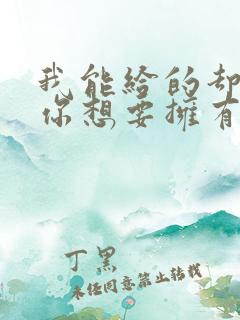 我能给的却
你想要擁有
丁黑
未经同意禁止转载